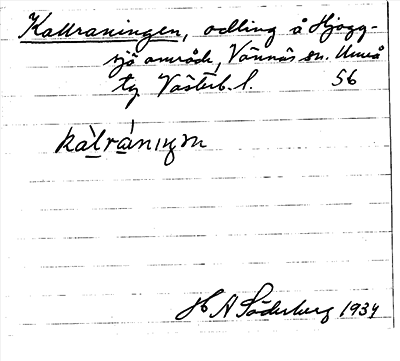 Kallraningen, odling å Hjogg-
sjö område, Vännäs sn. Umeå
tg Västerb. l. 56
kàlránıŋen
H A Söderberg 1934